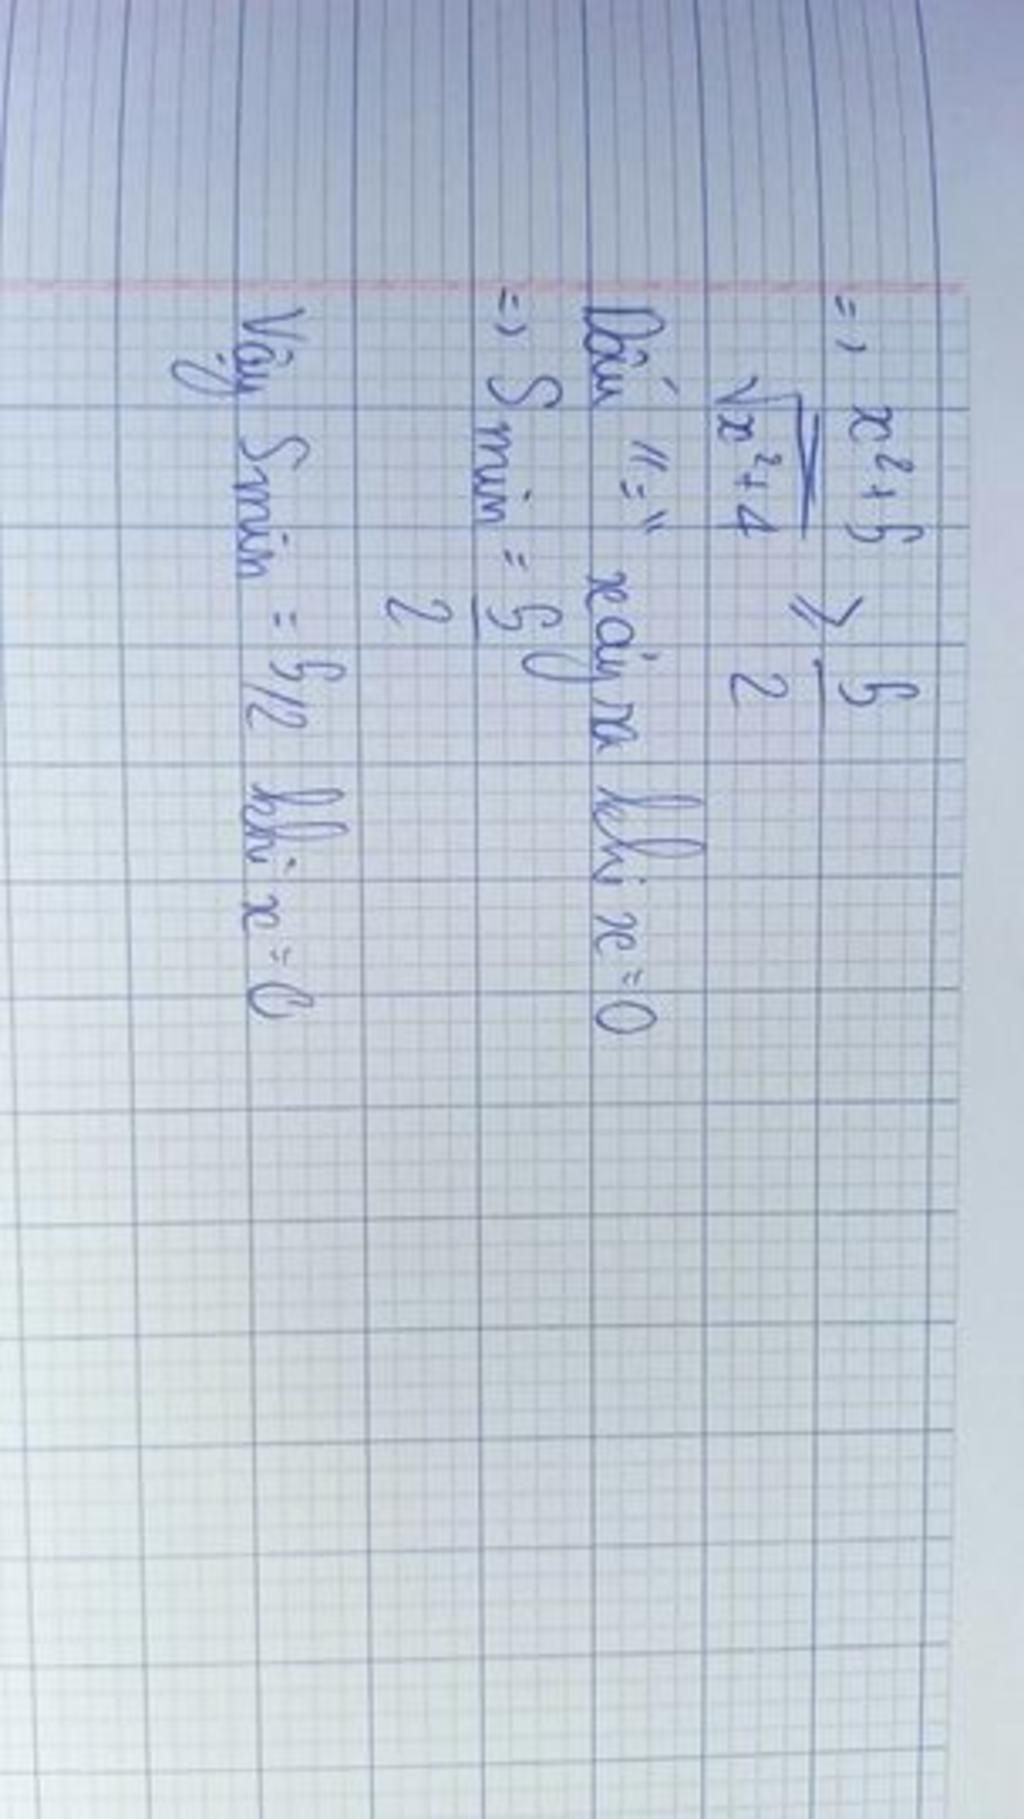 => x²+5 / √x²+4 ≥ 5/2
Dấu "=" xảy ra khi x=0
=> Smin = 5/2
Vậy Smin = 5/2 khi x=0